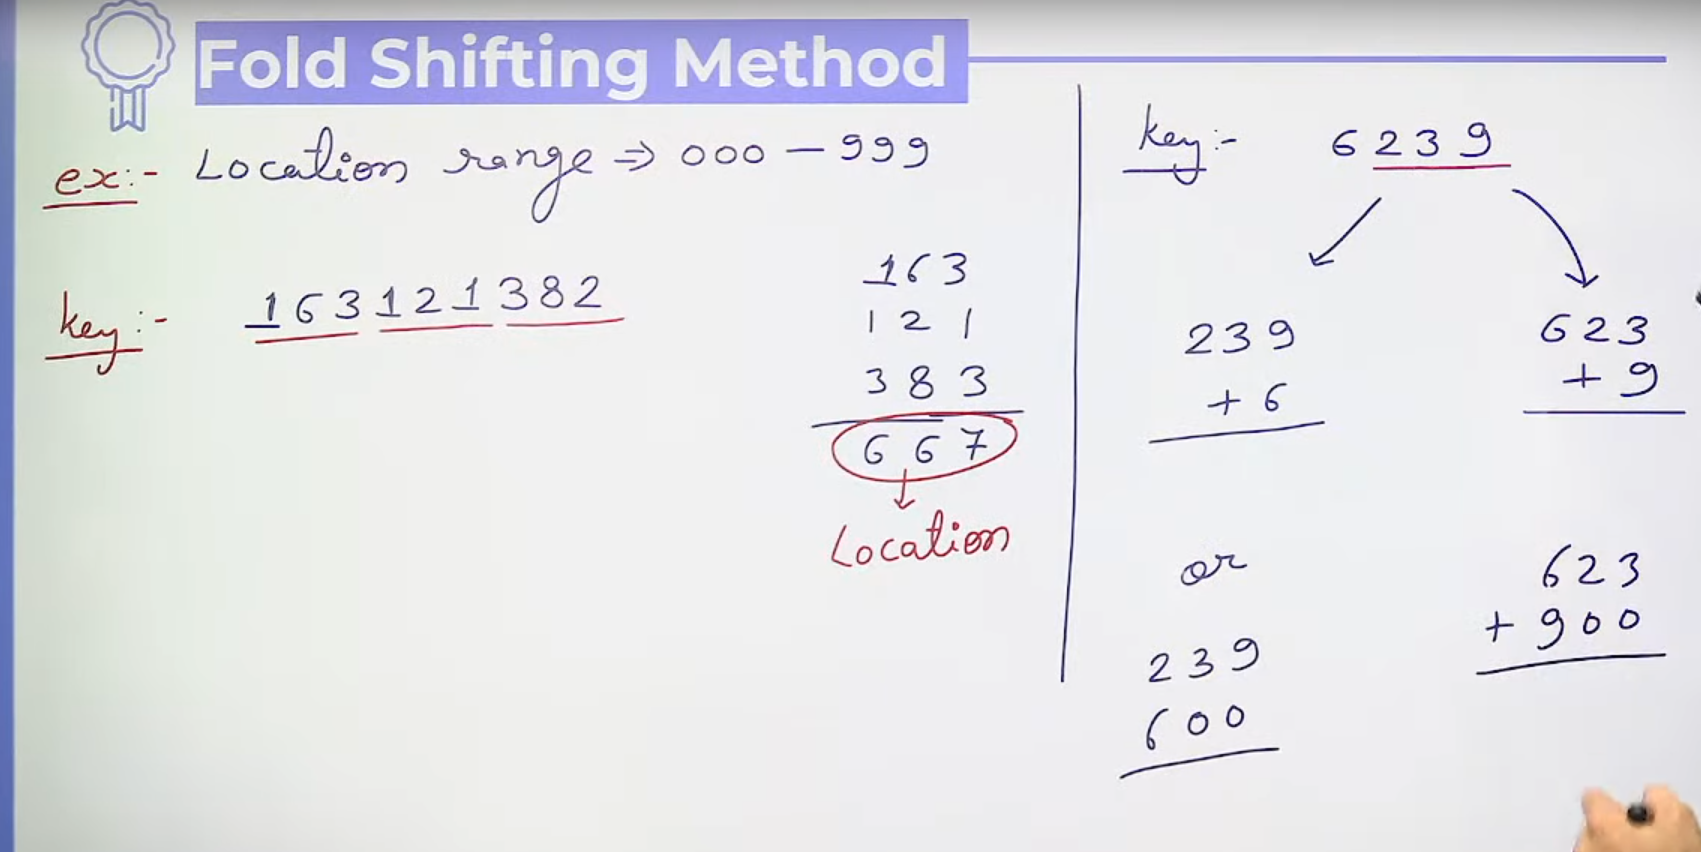 Fold Shifting Method
ex:- Location range ⇒ 000 - 999
key:- 163121382
163
121
383
667
Location
key:- 6239
239
+ 6
623
+ 9
or
239
600
623
+ 900